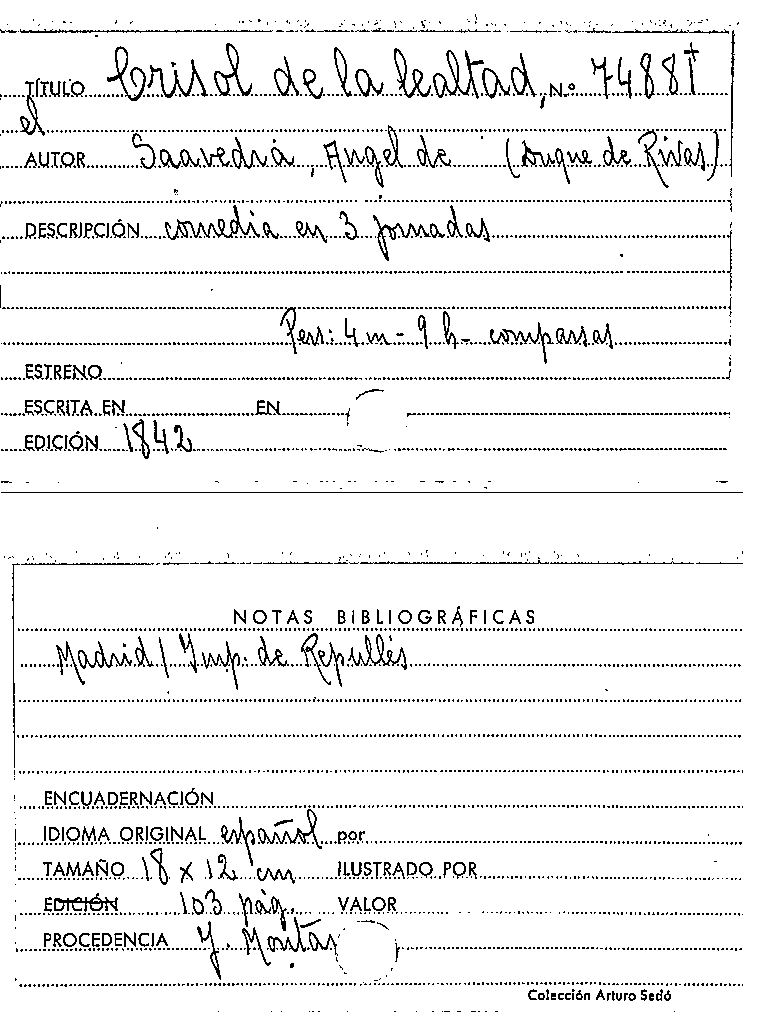 TÍTULO Crisol de la lealtad, Nº 7488†
el
AUTOR Saavedra, Angel de (Duque de Rivas)
DESCRIPCIÓN comedia en 3 jornadas
Pers: 4 m - 9 h - comparsas
ESTRENO
ESCRITA EN EN
EDICIÓN 1842
NOTAS BIBLIOGRÁFICAS
Madrid / Imp. de Repullés
ENCUADERNACIÓN
IDIOMA ORIGINAL español por
TAMAÑO 18 x 12 cm ILUSTRADO POR
EDICIÓN 103 pág. VALOR
PROCEDENCIA J. Montas
Colección Arturo Sedó